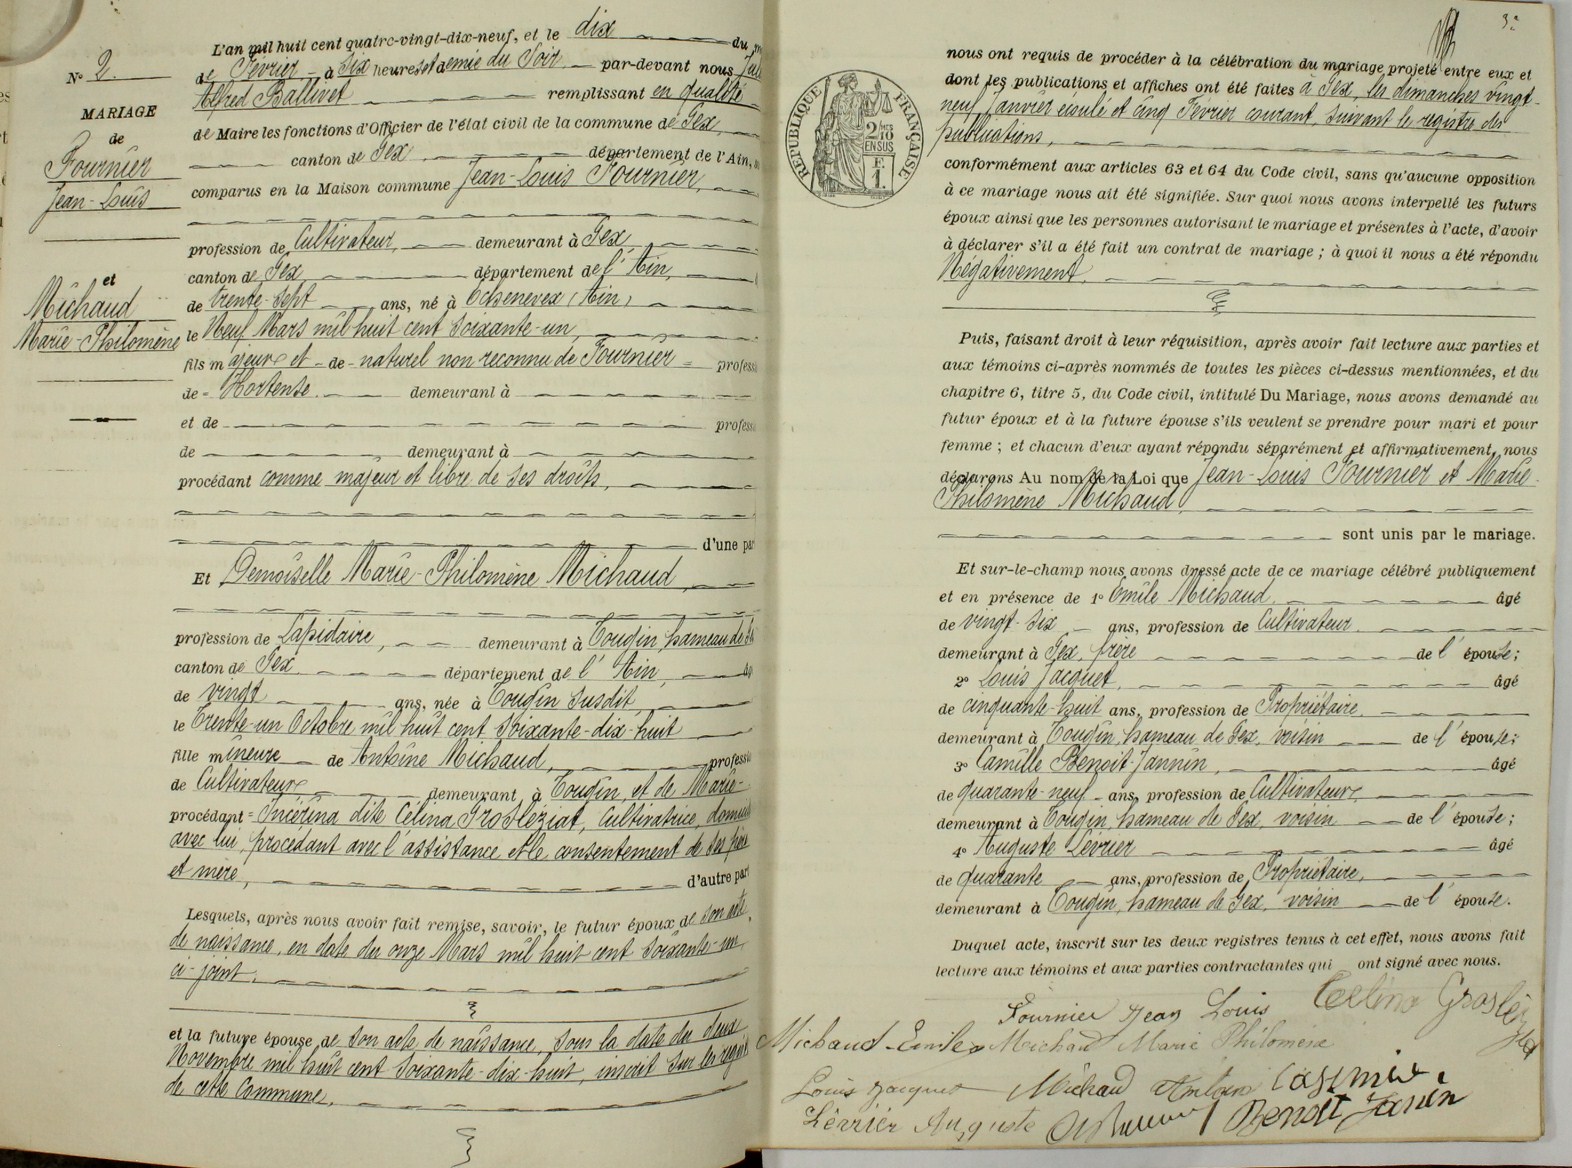 N° 2.
MARIAGE
de
Fournier
Jean-Louis
et
Michaud
Marie-Philomène
L'an mil huit cent quatre-vingt-dix-neuf, et le dix du
de Février à Six heures et demie du Soir par-devant nous
Alfred Ballivet remplissant en qualité
de Maire les fonctions d'Officier de l'état civil de la commune de Gex,
canton de Gex département de l'Ain,
comparus en la Maison commune Jean-Louis Fournier,
profession de Cultivateur, demeurant à Gex
canton de Gex département de l'Ain,
de trente-sept ans, né à Echenevex (Ain)
le Neuf Mars mil huit cent soixante-un,
fils majeur et de naturel non reconnu de Fournier
de Hortense demeurant à
et de
de demeurant à
procédant comme majeur et libre de ses droits,
d'une
Et Demoiselle Marie-Philomène Michaud,
profession de Lapidaire, demeurant à Tougin, hameau de
canton de Gex département de l'Ain,
de vingt ans, née à Tougin susdit
le Trente-un Octobre mil huit cent soixante-dix-huit
fille mineure de Antoine Michaud,
de Cultivateur demeurant à Tougin, et de Marie-
procédant dite Célina Grosléziat, Cultivatrice,
avec lui, procédant avec l'assistance et le consentement de ses père
et mère, d'autre
Lesquels, après nous avoir fait remise, savoir, le futur époux de son acte
de naissance, en date du onze Mars mil huit cent soixante-un
ci-joint.
et la future épouse de son acte de naissance, sous la date du deux
Novembre mil huit cent soixante-dix-huit, inscrit sur les
de cette Commune.
3
RÉPUBLIQUE FRANÇAISE
2/10
EN SUS
E
1.
nous ont requis de procéder à la célébration du mariage projeté entre eux et
dont les publications et affiches ont été faites à Gex, les dimanches vingt-
neuf Janvier écoulé et cinq Février courant, suivant le registre des
publications,
conformément aux articles 63 et 64 du Code civil, sans qu'aucune opposition
à ce mariage nous ait été signifiée. Sur quoi nous avons interpellé les futurs
époux ainsi que les personnes autorisant le mariage et présentes à l'acte, d'avoir
à déclarer s'il a été fait un contrat de mariage ; à quoi il nous a été répondu
Négativement.
Puis, faisant droit à leur réquisition, après avoir fait lecture aux parties et
aux témoins ci-après nommés de toutes les pièces ci-dessus mentionnées, et du
chapitre 6, titre 5, du Code civil, intitulé Du Mariage, nous avons demandé au
futur époux et à la future épouse s'ils veulent se prendre pour mari et pour
femme ; et chacun d'eux ayant répondu séparément et affirmativement, nous
déclarons Au nom de la Loi que Jean-Louis Fournier et Marie-
Philomène Michaud,
sont unis par le mariage.
Et sur-le-champ nous avons dressé acte de ce mariage célébré publiquement
et en présence de 1° Emile Michaud, âgé
de vingt-six ans, profession de Cultivateur
demeurant à Gex, frère de l'épouse;
2° Louis Jacquet, âgé
de cinquante-huit ans, profession de Propriétaire
demeurant à Tougin, hameau de Gex, voisin de l'épouse;
3° Camille Benoit-Jannin, âgé
de quarante-neuf ans, profession de Cultivateur,
demeurant à Tougin, hameau de Gex, voisin de l'épouse;
4° Auguste Lévrier âgé
de quarante ans, profession de Propriétaire,
demeurant à Tougin, hameau de Gex, voisin de l'épouse.
Duquel acte, inscrit sur les deux registres tenus à cet effet, nous avons fait
lecture aux témoins et aux parties contractantes qui ont signé avec nous.
Fournier Jean Louis
Michaud Emile Michaud Marie Philomène
Louis Jacquet Michaud Antoin Casimir
Lévrier Auguste Benoit Janin